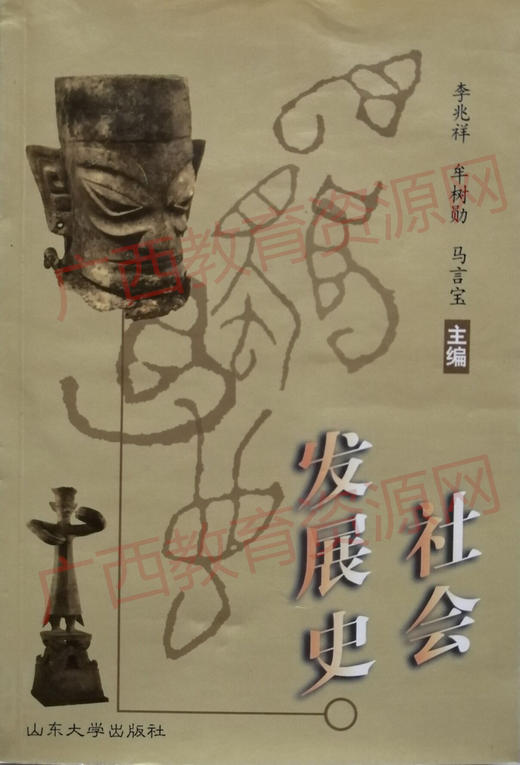 李兆祥 牟树勋 马言宝
主编
社会
发展史
山东大学出版社
广西教育资源网
广西教育资源网